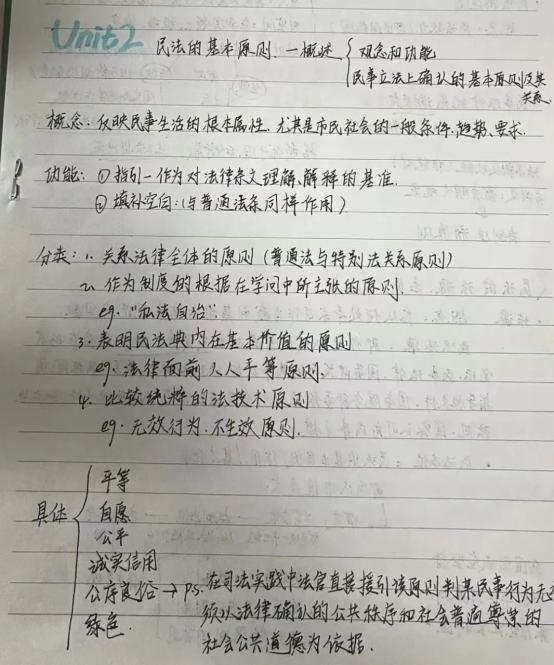 Unit2 民法的基本原则. 一概述 { 观念和功能
民事立法上确认的基本原则及其
关系
概念: 反映民事生活的根本属性, 尤其是市民社会的一般条件, 趋势、要求.
功能: ① 指引一作为对法律条文理解,解释的基准.
② 填补空白:(与普通法条同样作用)
分类: 1. 关系法律全体的原则 (普通法与特别法关系原则)
2. 作为制度的根据在学问中所主张的原则
eg. "私法自治"
3. 表明民法典内在基本价值的原则
eg. 法律面前人人平等原则.
4. 比较纯粹的法技术原则
eg. 无效行为.不生效原则.
具体 { 平等
自愿
公平
诚实信用
公序良俗 → ps. 在司法实践中法官直接援引该原则判某民事行为无效
须以法律确认的公共秩序和社会普遍尊崇的
绿色.
社会公共道德为依据.